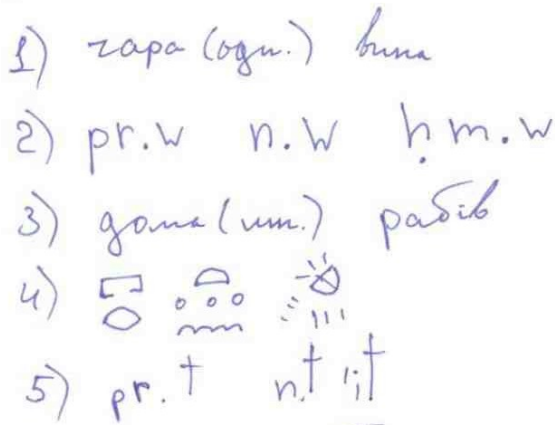 1) чара (одн.) вина
2) pr.w n.w ḥm.w
3) дома (мн.) рабів
4)
5) pr.t n.t